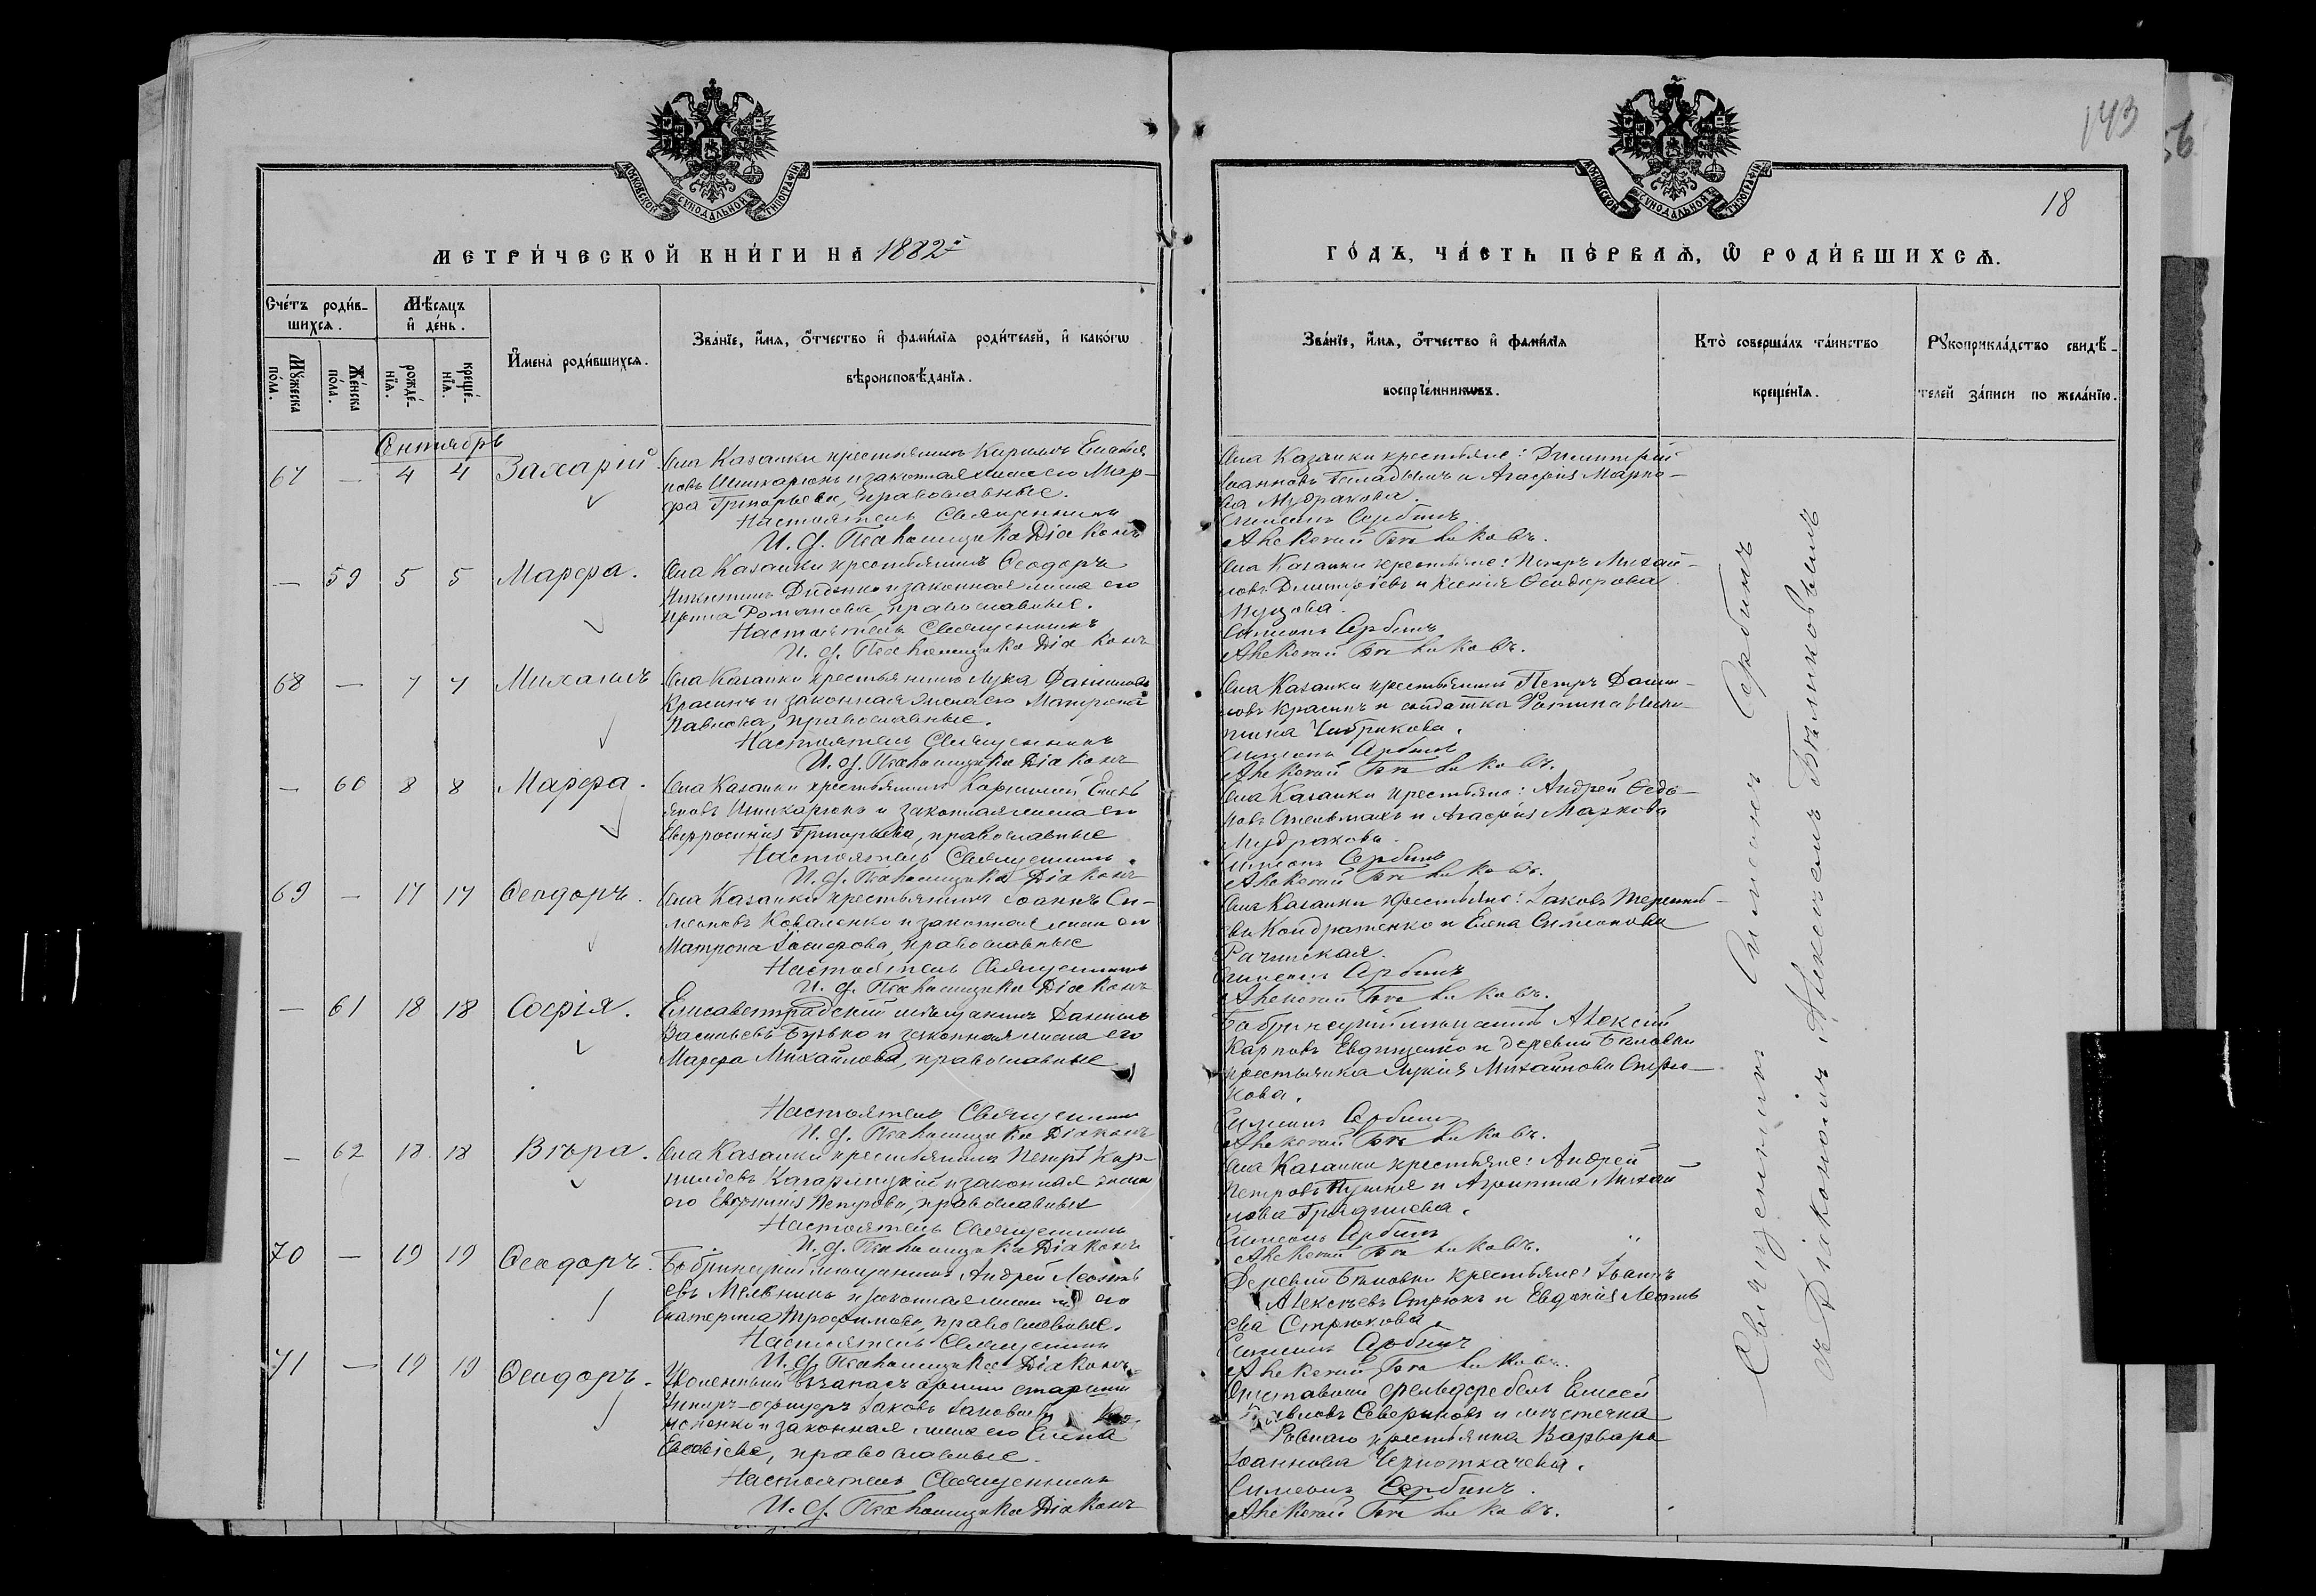 143
56
18
МОСКОВСКОЙ СУНОДАЛЬНОЙ ТИПОГРАФІИ
МОСКОВСКОЙ СУНОДАЛЬНОЙ ТИПОГРАФІИ
МЕТРИ́ЧЕСКОЙ КНИ́ГИ НА 1882й
ГО́ДЪ, ЧА́СТЬ ПЕ́РВАѦ, Ѡ РОДИ́ВШИХСѦ.
Сче́тъ роди́вшихсѧ.
Мꙋ́жеска по́ла.
Же́нска по́ла.
Мѣ́сѧцъ и҆ де́нь.
рожде́нїѧ.
креще́нїѧ.
И҆мена̀ роди́вшихсѧ.
Зва́нїе, и҆́мѧ, ѻ҆́тчество и҆ фами́лїѧ роди́телей, и҆ како́гѡ
вѣроисповѣ́данїѧ.
Зва́нїе, и҆́мѧ, ѻ҆́тчество и҆ фами́лїѧ
воспрїе́мникѡвъ.
Кто̀ соверша́лъ та́инство
креще́нїѧ.
Рꙋкоприкла́дство свидѣ́-
телей за́писи по жела́нїю.
Сентябрь
67 — 4 4 Захарій
Села Казанки крестьянинъ Кириллъ
новъ Шишкарюкъ и законная жена его Мар-
фа Григорьева, православные.
Настоятель Священникъ
И. д. Псаломщика Діаконъ
Села Казанки крестьяне: Димитрій
Іоанновъ и Агафія Марко-
ва Мудракова.
Симеонъ Сербинъ
Алексѣй Бѣликовъ.
— 59 5 5 Марфа.
Села Казанки крестьянинъ Ѳеодоръ
Никитинъ Диденко и законная жена его
Ирина Романова, православные.
Настоятель Священникъ
И. д. Псаломщика Діаконъ
Села Казанки крестьяне: Петръ Михай-
ловъ Димитріевъ и Ксенія Ѳеодорова
Симеонъ Сербинъ
Алексѣй Бѣликовъ.
68 — 7 7 Михаилъ
Села Казанки крестьянинъ Лука Даниловъ
Красинъ и законная жена его Матрона
Павлова, православные.
Настоятель Священникъ
И. д. Псаломщика Діаконъ
Села Казанки крестьянинъ Петръ Дани-
ловъ Красинъ и солдатка Фотина Ники-
тина Чибрикова.
Симеонъ Сербинъ
Алексѣй Бѣликовъ.
— 60 8 8 Марфа.
Села Казанки крестьянинъ Корнилій Емель-
яновъ Шишкарюкъ и законная жена его
Евфросинія Григорьева, православные
Настоятель Священникъ
И. д. Псаломщика Діаконъ
Села Казанки крестьяне: Андрей Ѳедо-
ровъ Стельмахъ и Агафія Маркова
Мудракова.
Симеонъ Сербинъ
Алексѣй Бѣликовъ.
69 — 17 17 Ѳеодоръ.
Села Казанки крестьянинъ Іоаннъ Си-
меоновъ Коваленко и законная жена его
Матрона Іосифова, православные
Настоятель Священникъ
И. д. Псаломщика Діаконъ
Села Казанки крестьяне: Іаковъ Терентье-
въ Кондратенко и Елена Симеонова
Рачинская.
Симеонъ Сербинъ
Алексѣй Бѣликовъ.
— 61 18 18 Софія.
Елисаветградскій мѣщанинъ Даніилъ
Васильевъ Бутько и законная жена его
Марфа Михайлова, православные
Настоятель Священникъ
И. д. Псаломщика Діаконъ
Бобринецкій мѣщанинъ Алексѣй
Карповъ Евдищенко и деревни Бѣловки
крестьянка Лукія Михайлова Стрю-
кова.
Симеонъ Сербинъ
Алексѣй Бѣликовъ.
— 62 18 18 Вѣра.
Села Казанки крестьянинъ Петръ Кор-
ниліевъ Кагарлицкій и законная жена
его Евгенія Петрова, православные
Настоятель Священникъ
И. д. Псаломщика Діаконъ
Села Казанки крестьяне: Андрей
Петровъ и Агриппина Михай-
лова
Симеонъ Сербинъ
Алексѣй Бѣликовъ.
70 — 19 19 Ѳеодоръ.
Бобринецкій мѣщанинъ Андрей Леонть-
евъ Мельникъ и законная жена его
Екатерина Трофимова, православные.
Настоятель Священникъ
И. д. Псаломщика Діаконъ
Деревни Бѣловки крестьяне: Іоаннъ
Алексѣевъ Стрюкъ и Евдокія Леонть-
ева Стрюкова.
Симеонъ Сербинъ
Алексѣй Бѣликовъ.
71 — 19 19 Ѳеодоръ.
Уволенный въ запасъ арміи старшій
Унтеръ-офицеръ Іаковъ Іаковлевъ
и законная жена его Елена
православные.
Настоятель Священникъ
И. д. Псаломщика Діаконъ
Отставной фельдфебель Елисей
Павловъ Севериновъ и мѣстечка
Ровнаго крестьянка Варвара
Іоаннова Черноткачева.
Симеонъ Сербинъ.
Алексѣй Бѣликовъ.
Священникъ Симеонъ Сербинъ
съ Діакономъ Алексѣемъ Бѣликовымъ